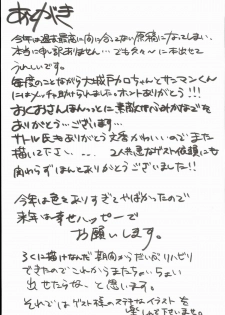 あとがき
今年は過去最高に間に合ってない原稿になってしまい、
本当に申し訳ありません…でも久々〜に本出せて
うれしいです。
毎度のことながら大城戸カロちゃんとサンマンくん
にはメッチャ助けられました。ホントありがとう!!!
おくおさんほんっとに素敵な
ありがとう…ございます…
サトル氏もありがとう文章かわいいのでまた
描いて下さい… 2人共急なゲスト依頼にも
関わらずほんとありがとうございました!!
今年は色々ありすぎてやばかったので
来年は幸せハッピーで
お願いします。
ろくに描けなんだ期間からだいぶリハビリ
できたのでこれからまたちょいちょい
出せたらな、と思います。
それではゲスト様のステキなイラストを
楽しんで下さいませ。